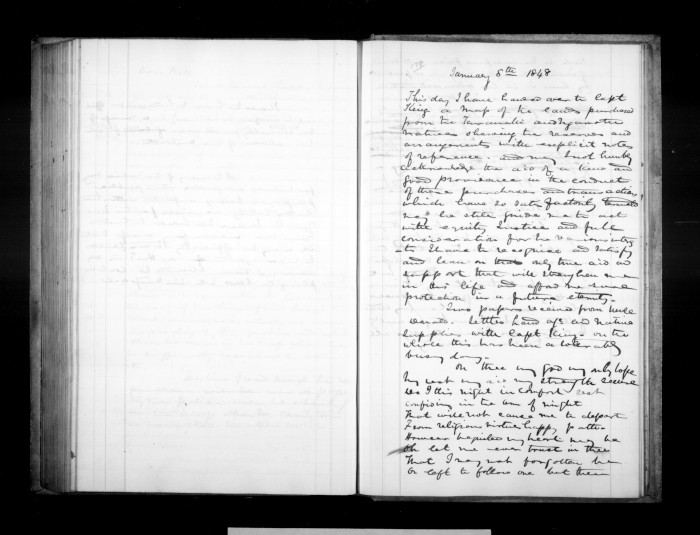 January 8th 1848
This day I have handed over to Capt
King a map of the lands purchased
from the Taranaki and Ngamotu
natives shewing the reserves and
arrangements with explicit notes
of reference. and may I not humbly
acknowledge the aid of a kind and
good providence in the conduct
of these purchases and transactions,
which have so satisfactorily
may he still guide me to act
with equity Justice and full
consideration for
to
and lean on that only true aid and
support that will strengthen me
in this life and afford me sure
protection in a future eternity.
Two papers received from
Settled and native
supplies with Capt King. on the
whole this has been a tolerably
busy day.
On thee my god my only hope
My rest my my strength secure
do I this night in comfort rest
confiding in the of might
That will not cause me to depart
From religions virtues happy paths.
However my heart may be
Oh let me ever trust in thee
That I may not forgotten be
Or left to follow one but thee